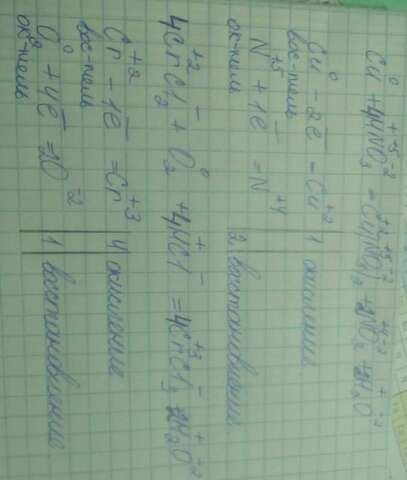 Cu⁰ + 4H⁺N⁺⁵O₃⁻² = Cu⁺²(N⁺⁵O₃⁻²)₂ + 2N⁺⁴O₂⁻² + 2H₂⁺O⁻²
Cu⁰ - 2e̅ = Cu⁺² | 1 | окисление
вос-тель
N⁺⁵ + 1e̅ = N⁺⁴ | 2 | восстановление
ок-тель
4Cr⁺²Cl₂⁻ + O₂⁰ + 4H⁺Cl⁻ = 4Cr⁺³Cl₃⁻ + 2H₂⁺O⁻²
Cr⁺² - 1e̅ = Cr⁺³ | 4 | окисление
вос-тель
O₂⁰ + 4e̅ = 2O⁻² | 1 | восстановление
ок-тель